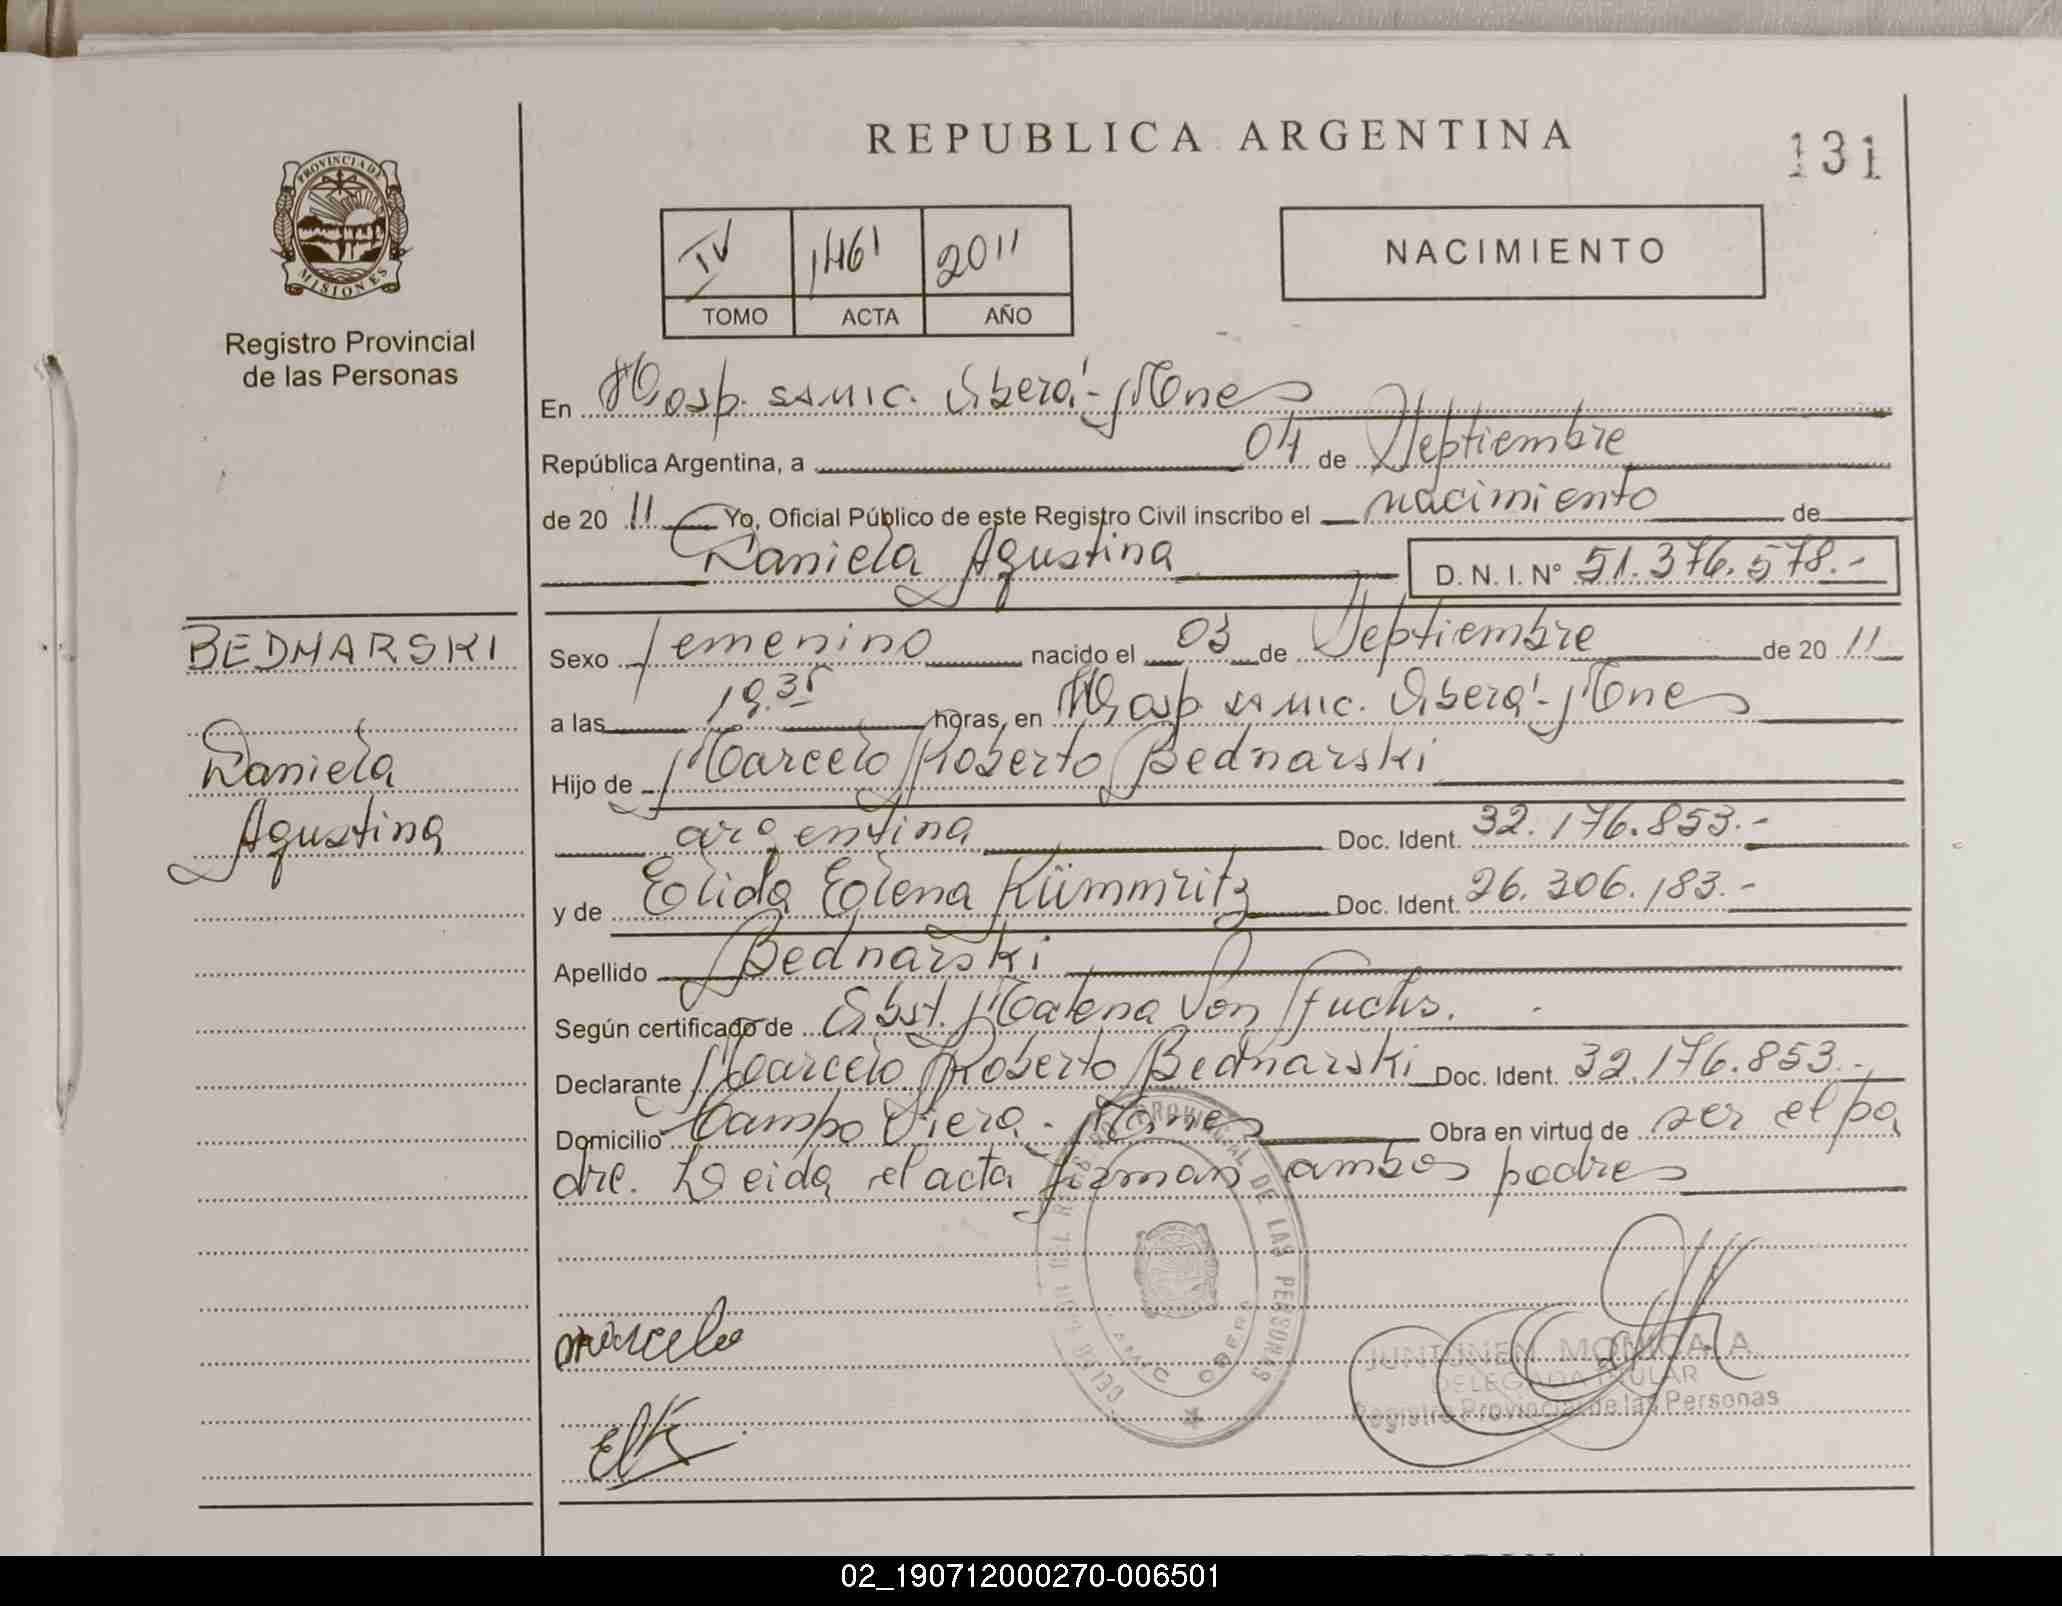 REPUBLICA ARGENTINA
131
PROVINCIA DE
MISIONES
Registro Provincial
de las Personas
IV 1461 2011
TOMO ACTA AÑO
NACIMIENTO
En Hosp. SAMIC. Oberá - Mnes
República Argentina, a 04 de Septiembre
de 20 11 Yo, Oficial Público de este Registro Civil inscribo el nacimiento de
Daniela Agustina D. N. I. N° 51.376.578.-
BEDNARSKI
Daniela
Agustina
Sexo femenino nacido el 03 de Septiembre de 20 11
a las 19.35 horas, en Hosp SAMIC. Oberá - Mnes
Hijo de Marcelo Roberto Bednarski
argentina Doc. Ident. 32.176.853.-
y de Elida Elena Kümmritz Doc. Ident. 26.306.183.-
Apellido Bednarski
Según certificado de Obst. Malena Von Fuchs.
Declarante Marcelo Roberto Bednarski Doc. Ident. 32.176.853.-
Domicilio Campo Viera - Mnes Obra en virtud de ser el pa
dre. Leida el acta firman ambos padres
PROVINCIAL DE LAS PERSONAS
OBERA
Marcelo
EK
JUNTUNEN MONICA A
DELEGADA TITULAR
Registro Provincial de las Personas
02_190712000270-006501